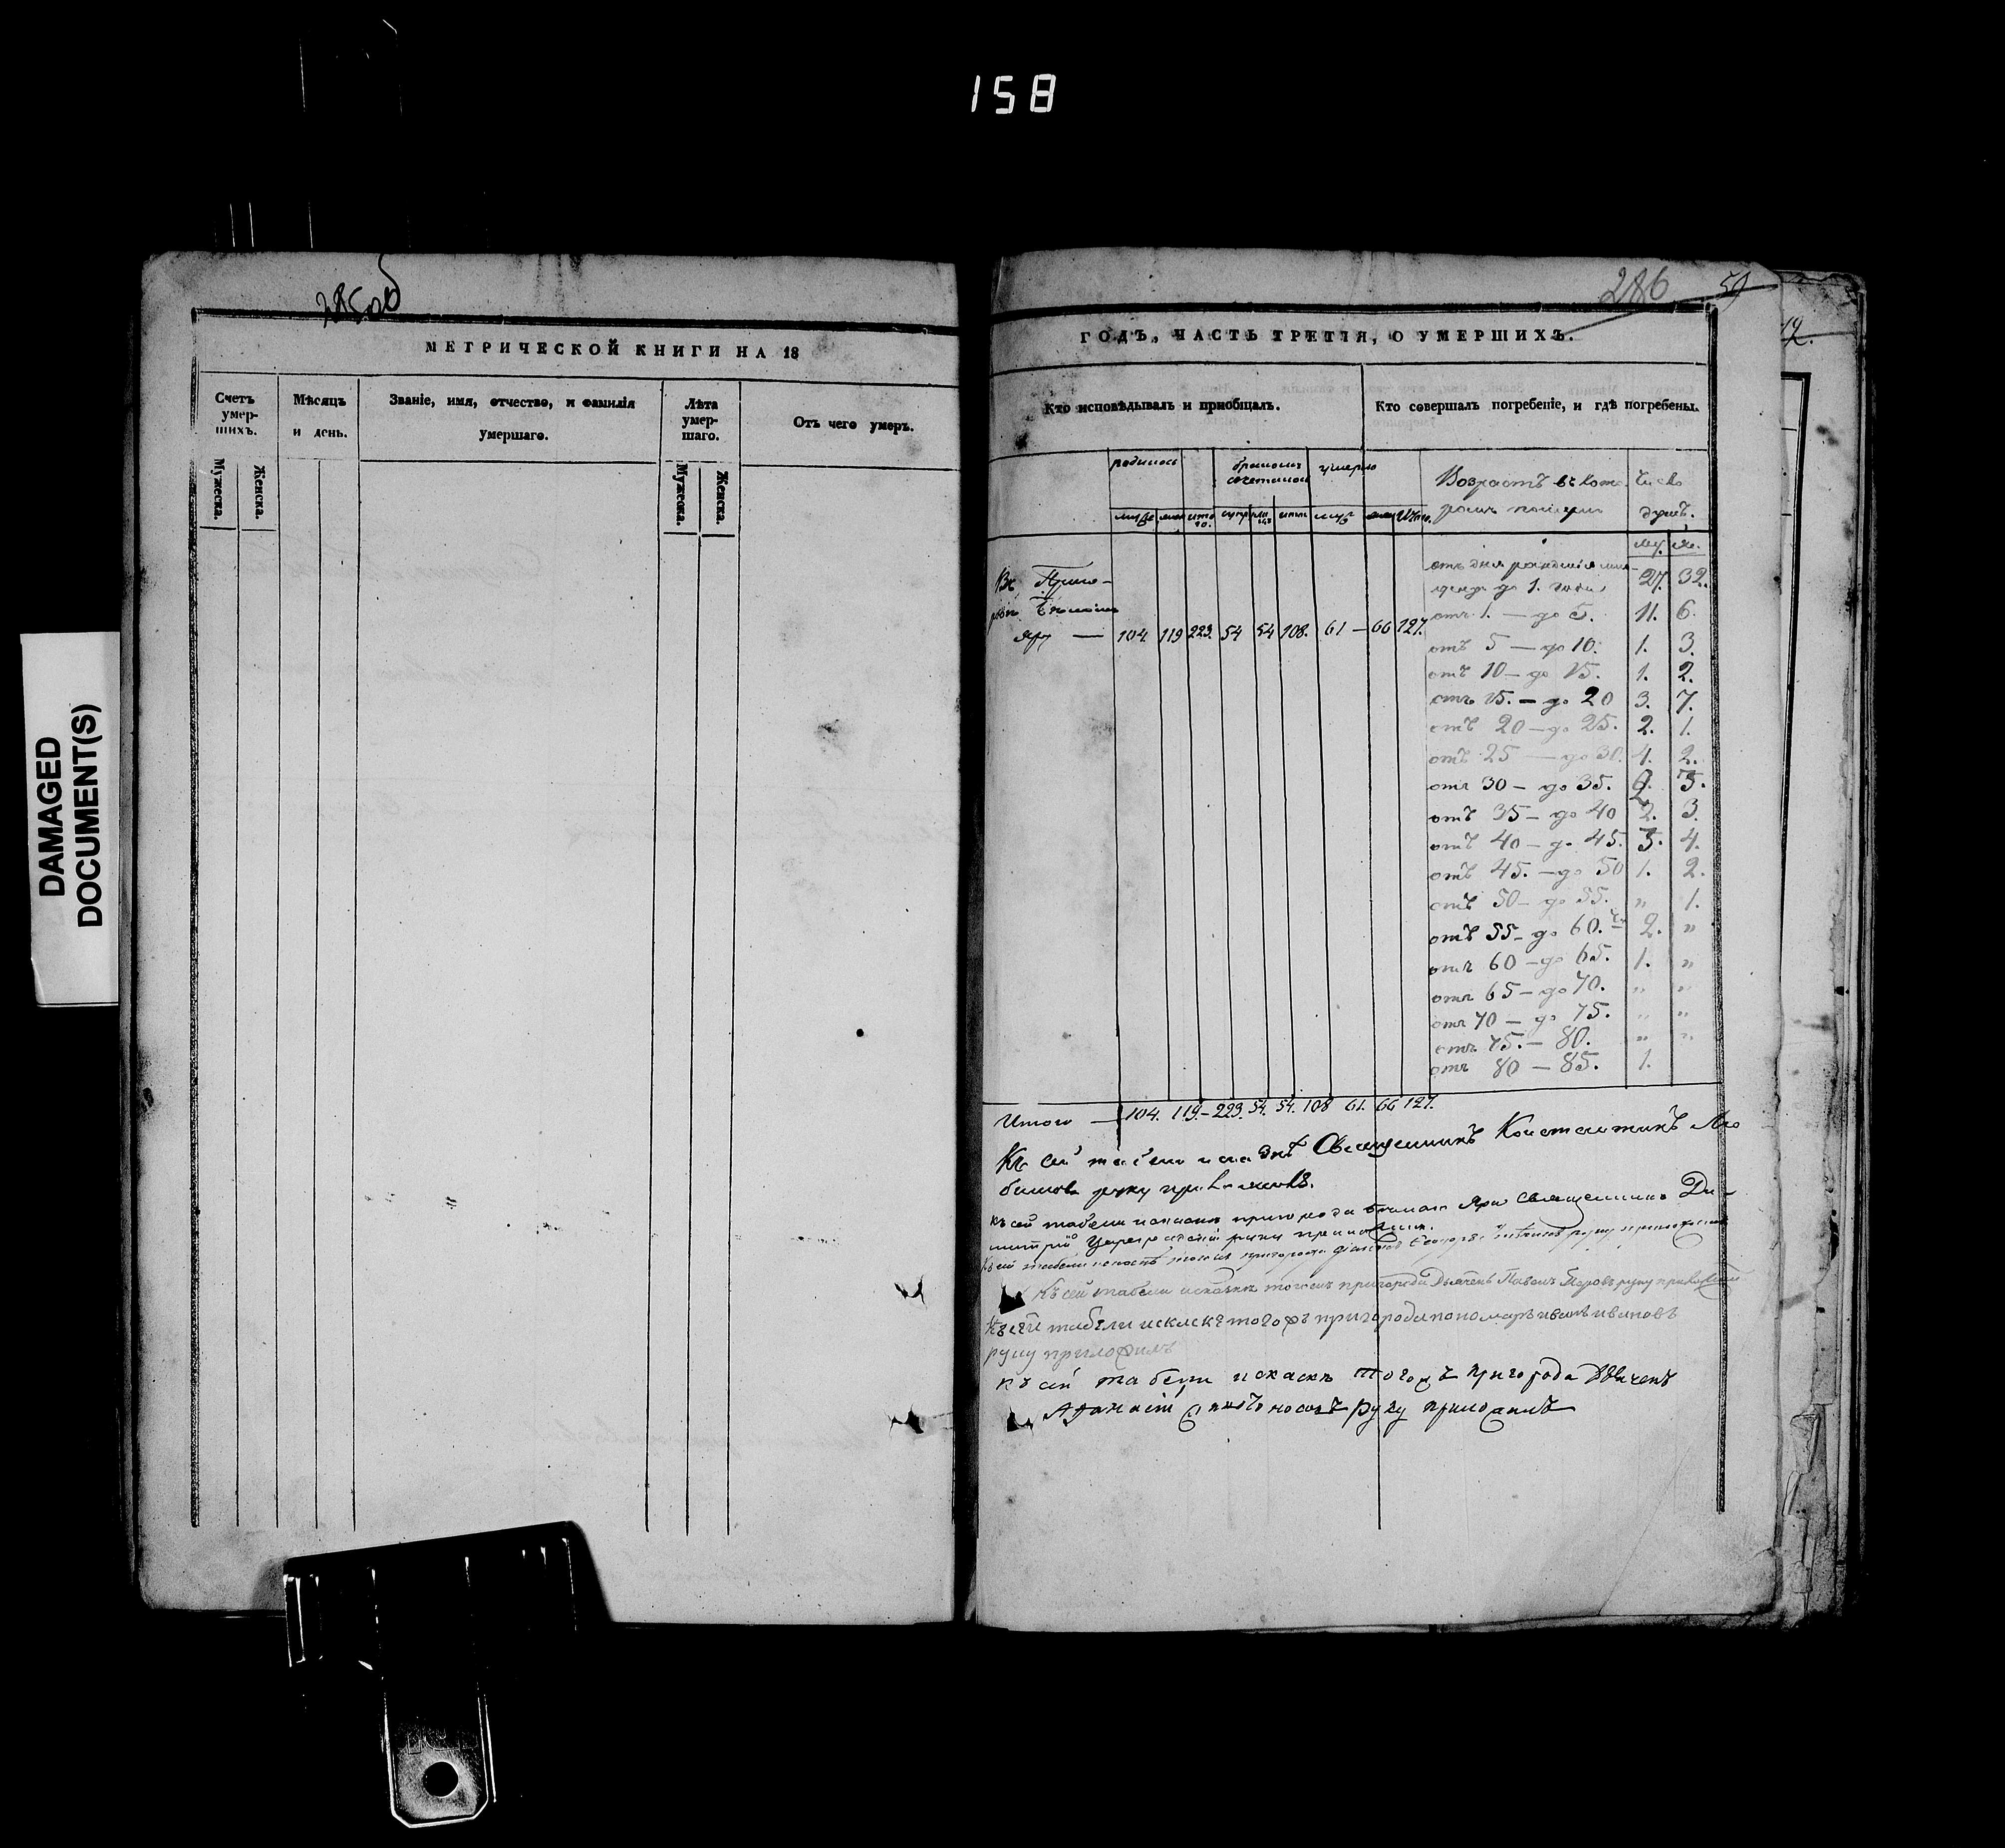 158
DAMAGED
DOCUMENT(S)
285 об
МЕТРИЧЕСКОЙ КНИГИ НА 18
Счетъ умер-шихъ.
Мѣсяцъ и день.
Званіе, имя, отчество, и фамилія умершаго.
Лѣта умер-шаго.
Отъ чего умеръ.
Мужеска.
Женска.
Мужеска.
Женска.
286
59
ГОДЪ, ЧАСТЬ ТРЕТІЯ, О УМЕРШИХЪ.
Кто исповѣдывалъ и пріобщалъ.
Кто совершалъ погребеніе, и гдѣ погребены.
родилось
бракомъ сочетанои
умерло
Возрастъ въ кото-
ромъ
Число
душъ.
ито
го.
му. же.
отъ дня рожденія
до 1. года 27. 32.
отъ 1. — до 5. 11. 6.
отъ 5 — до 10. 1. 3.
отъ 10 — до 15. 1. 2.
отъ 15. — до 20 3. 7.
отъ 20 — до 25. 2. 1.
отъ 25 — до 30. 4. 2.
отъ 30 — до 35. 2. 3.
отъ 35 — до 40 2. 3.
отъ 40 — до 45. 3. 4.
отъ 45. — до 50 1. 2.
отъ 50 — до 55. " 1.
отъ 55 — до 60. 2. "
отъ 60 — до 65. 1. "
отъ 65 — до 70. " "
отъ 70 — до 75. " "
отъ 75. — 80. " "
отъ 80 — 85. 1.
Въ Приго-
родѣ
яру — 104. 119 223. 54 54 108. 61 — 66 127.
Итого — 104. 119. — 223. 54. 54. 108 61. 66 127.
Къ сей табели Священникъ Константинъ
руку приложилъ.
къ сей табели пригорода яра священникъ Ди-
митрій руку приложилъ.
Къ сей табели пригорода руку приложилъ
Къ сей табели исказкѣ тогожъ пригорода Дьячекъ Павелъ руку приложилъ
Къ сей табели исказкѣ тогожъ пригорода пономарь иванъ ивановъ
руку приложилъ
къ сей табели исказкѣ тогожъ пригорода Дьячекъ
Афанасій руку приложилъ